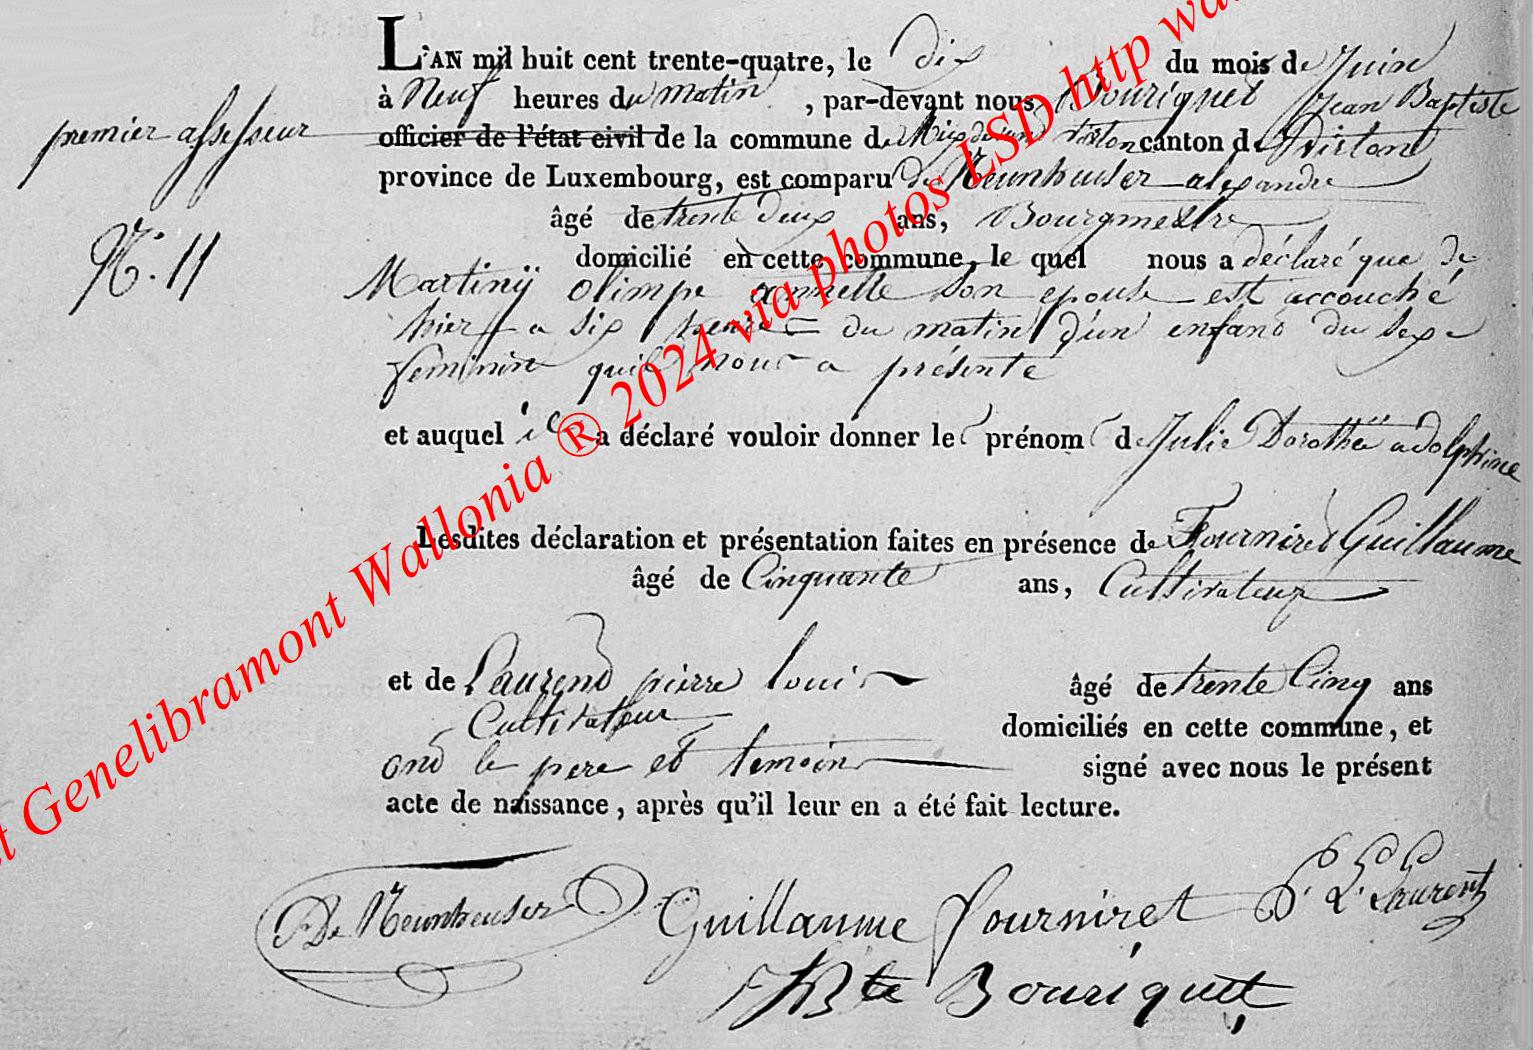 L'AN mil huit cent trente-quatre, le dix du mois de Juin
à Neuf heures du matin , par-devant nous Bouriquet Jean Baptiste
premier assesseur officier de l'état civil de la commune de canton de Virton
province de Luxembourg, est comparu De Neunheuser alexandre
âgé de trente deux ans, Bourgmestre
N.° 11
domicilié en cette commune, le quel nous a déclaré que de
Martinÿ olimpe annette son epouse est accouché
hier a six heure du matin d'un enfant du sexe
feminin quil nous a présenté
et auquel il a déclaré vouloir donner le prénom de Julie Dorothée adolphine
Lesdites déclaration et présentation faites en présence de Fourniret Guillaume
âgé de Cinquante ans, Cultivateur
et de Laurent pierre louis âgé de trente Cinq ans
Cultivateur domiciliés en cette commune, et
ont le pere et temoins signé avec nous le présent
acte de naissance, après qu'il leur en a été fait lecture.
De Neunheuser Guillaume fourniret P. L. Laurent
JBte Bouriquet
t Genelibramont Wallonia ® 2024 via photos LSD http wa